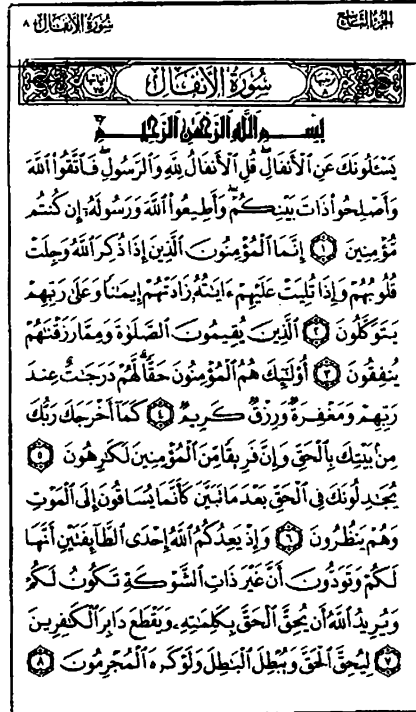 الجزء التاسع
سورة الأنفال ٨
ترتيبها ٨ سورة الأنفال آياتها ٧٥
بسم الله الرحمن الرحيم
يَسْـَٔلُونَكَ عَنِ ٱلْأَنفَالِۖ قُلِ ٱلْأَنفَالُ لِلَّهِ وَٱلرَّسُولِۖ فَٱتَّقُوا۟ ٱللَّهَ
وَأَصْلِحُوا۟ ذَاتَ بَيْنِكُمْۖ وَأَطِيعُوا۟ ٱللَّهَ وَرَسُولَهُۥٓ إِن كُنتُم
مُّؤْمِنِينَ ١ إِنَّمَا ٱلْمُؤْمِنُونَ ٱلَّذِينَ إِذَا ذُكِرَ ٱللَّهُ وَجِلَتْ
قُلُوبُهُمْ وَإِذَا تُلِيَتْ عَلَيْهِمْ ءَايَٰتُهُۥ زَادَتْهُمْ إِيمَٰنًا وَعَلَىٰ رَبِّهِمْ
يَتَوَكَّلُونَ ٢ ٱلَّذِينَ يُقِيمُونَ ٱلصَّلَوٰةَ وَمِمَّا رَزَقْنَٰهُمْ
يُنفِقُونَ ٣ أُو۟لَٰٓئِكَ هُمُ ٱلْمُؤْمِنُونَ حَقًّاۚ لَّهُمْ دَرَجَٰتٌ عِندَ
رَبِّهِمْ وَمَغْفِرَةٌ وَرِزْقٌ كَرِيمٌ ٤ كَمَآ أَخْرَجَكَ رَبُّكَ
مِنۢ بَيْتِكَ بِٱلْحَقِّ وَإِنَّ فَرِيقًا مِّنَ ٱلْمُؤْمِنِينَ لَكَٰرِهُونَ ٥
يُجَٰدِلُونَكَ فِى ٱلْحَقِّ بَعْدَ مَا تَبَيَّنَ كَأَنَّمَا يُسَاقُونَ إِلَى ٱلْمَوْتِ
وَهُمْ يَنظُرُونَ ٦ وَإِذْ يَعِدُكُمُ ٱللَّهُ إِحْدَى ٱلطَّآئِفَتَيْنِ أَنَّهَا
لَكُمْ وَتَوَدُّونَ أَنَّ غَيْرَ ذَاتِ ٱلشَّوْكَةِ تَكُونُ لَكُمْ
وَيُرِيدُ ٱللَّهُ أَن يُحِقَّ ٱلْحَقَّ بِكَلِمَٰتِهِۦ وَيَقْطَعَ دَابِرَ ٱلْكَٰفِرِينَ
٧ لِيُحِقَّ ٱلْحَقَّ وَيُبْطِلَ ٱلْبَٰطِلَ وَلَوْ كَرِهَ ٱلْمُجْرِمُونَ ٨